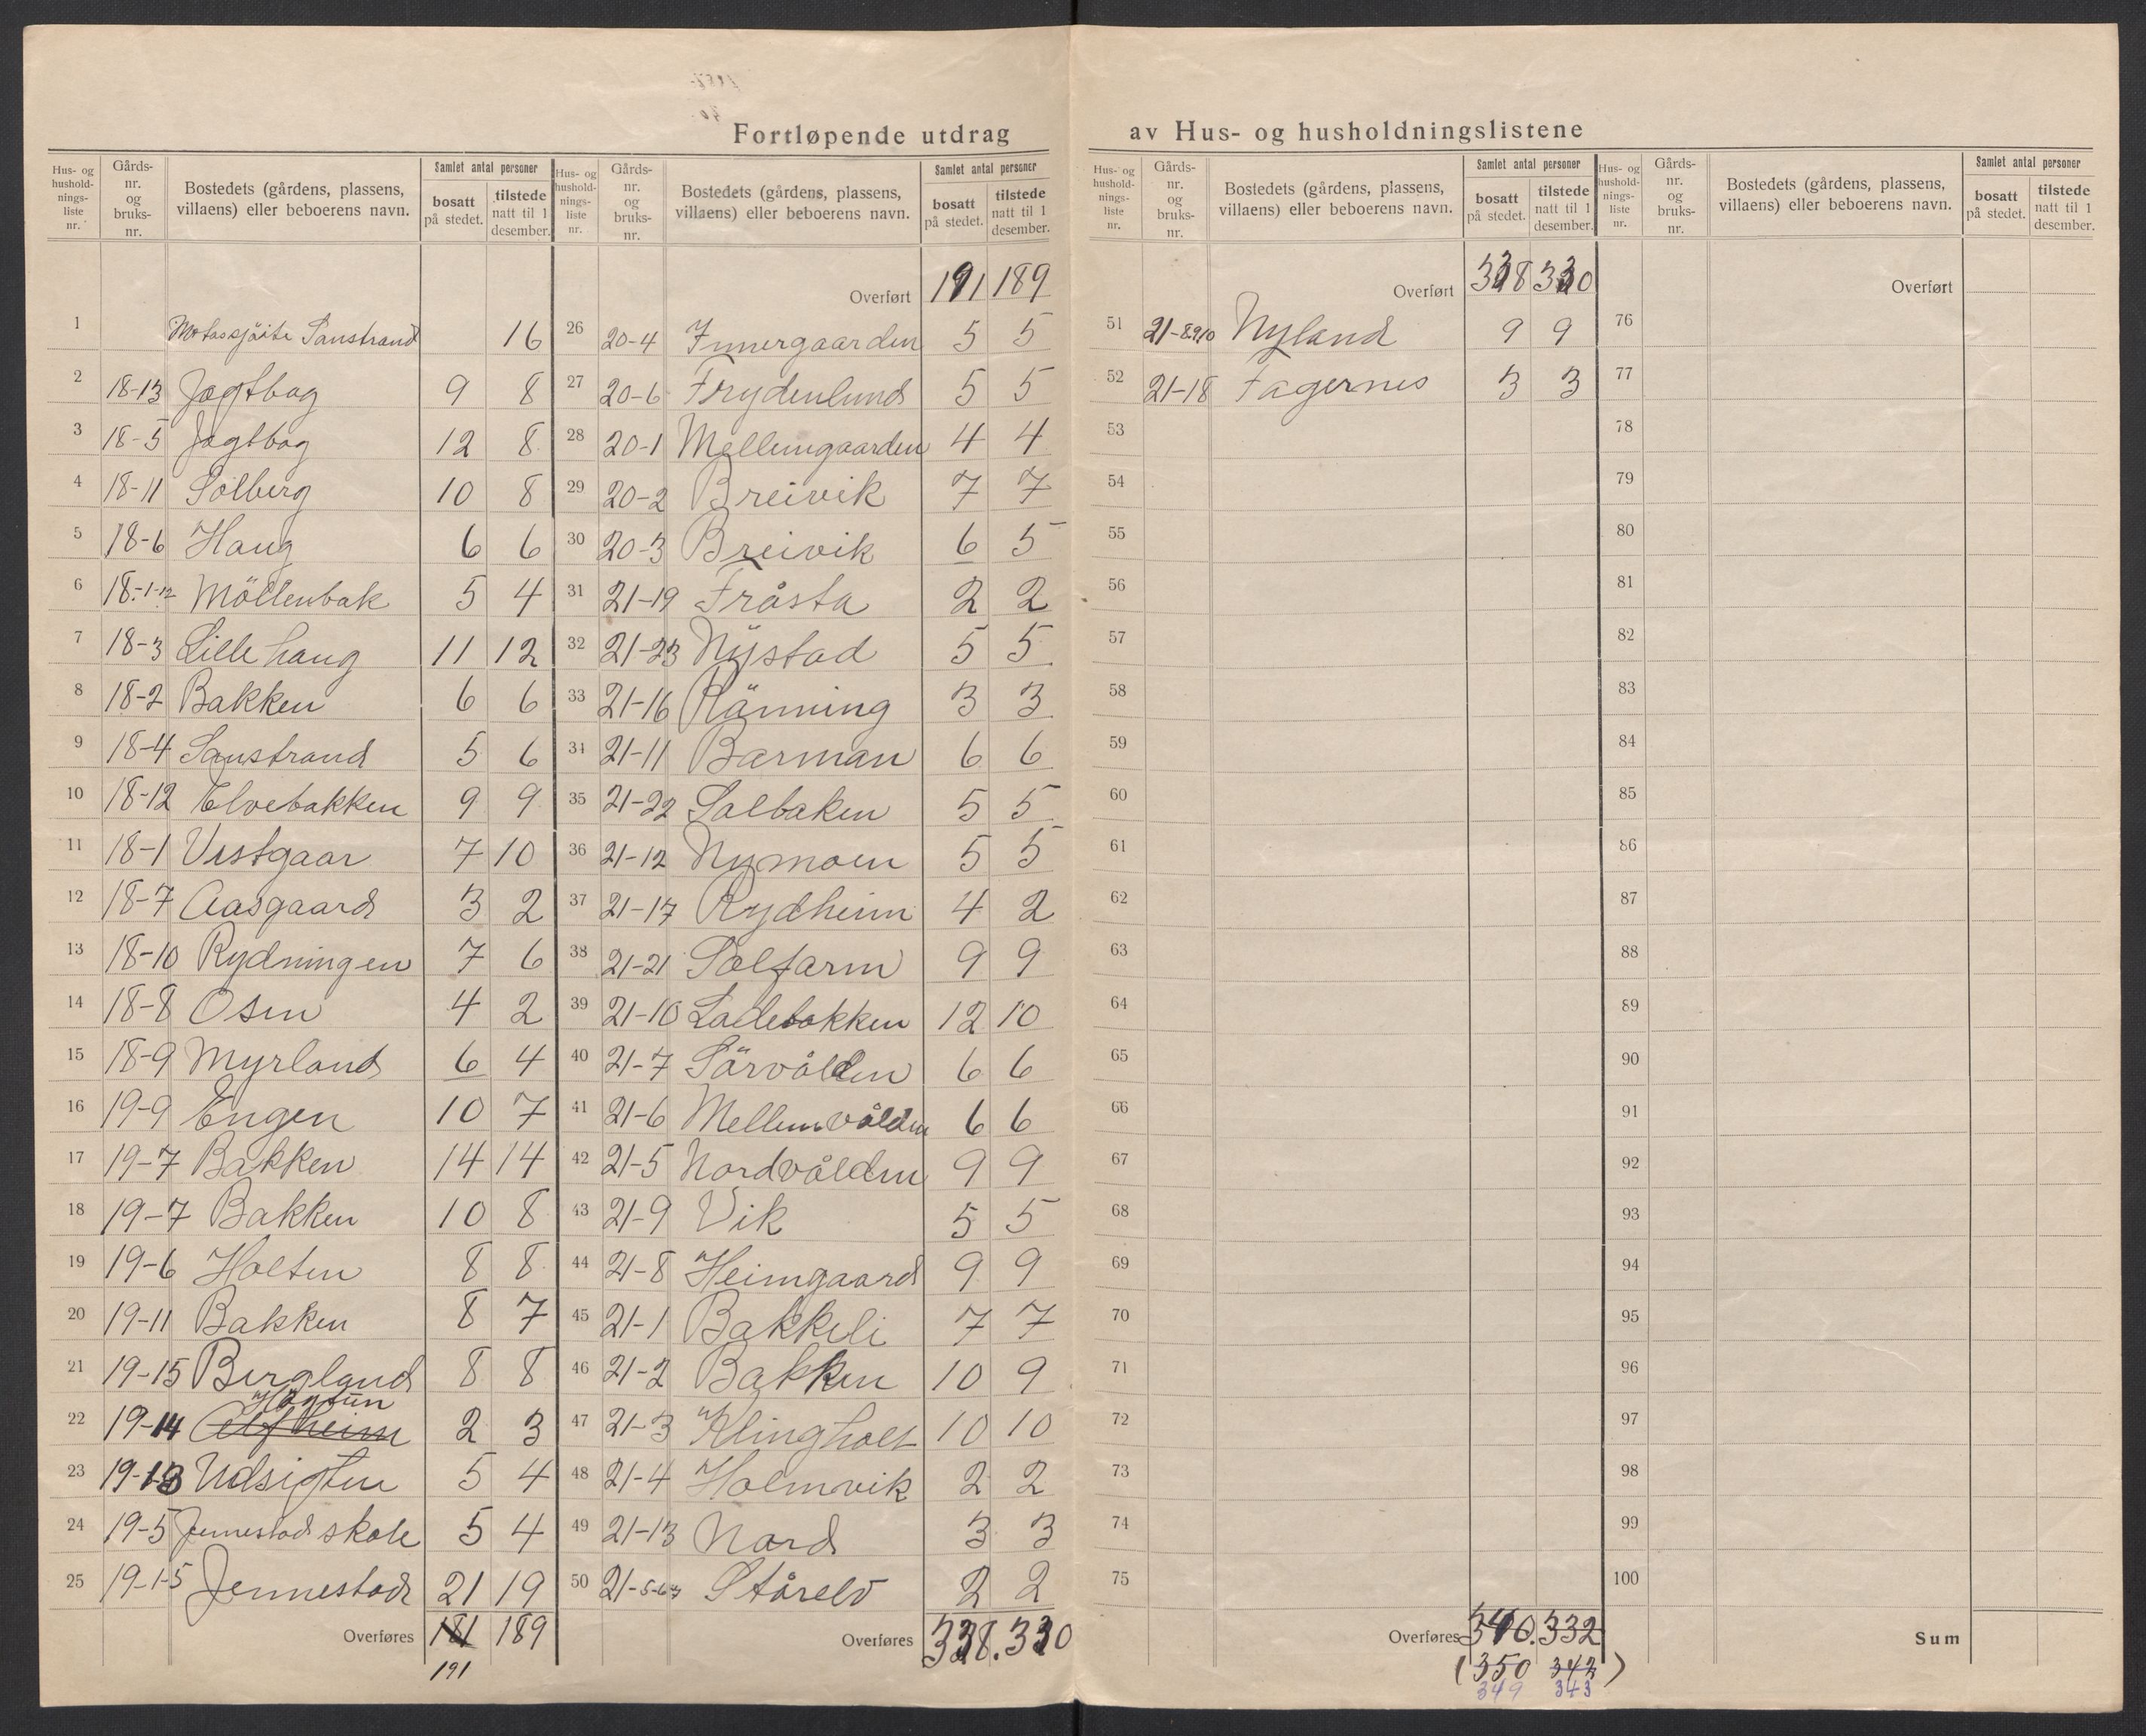 Fortløpende utdrag av Hus- og husholdningslistene
Hus- og hushold-nings-liste nr. Gårds-nr. og bruks-nr. Bostedets (gårdens, plassens, villaens) eller beboerens navn. Samlet antal personer bosatt på stedet. tilstede natt til 1 desember.
1 Sanstrand 16
2 18-13 Jagtbog 9 8
3 18-5 Jagtbog 12 8
4 18-11 Solberg 10 8
5 18-6 Haug 6 6
6 18-1-12 Möllenbak 5 4
7 18-3 Lille haug 11 12
8 18-2 Bakken 6 6
9 18-4 Sanstrand 5 6
10 18-12 Elvebakken 9 9
11 18-1 Vestgaar 7 10
12 18-7 Aasgaard 3 2
13 18-10 Rydningen 7 6
14 18-8 Osen 4 2
15 18-9 Myrland 6 4
16 19-9 Engen 10 7
17 19-7 Bakken 14 14
18 19-7 Bakken 10 8
19 19-6 Holten 8 8
20 19-11 Bakken 8 7
21 19-15 Bergland 8 8
Högtun
22 19-14 Alfheim 2 3
23 19-13 Udsigten 5 4
24 19-5 Jennestad skole 5 4
25 19-1-5 Jennestad 21 19
Overføres 181 189
191
Hus- og hushold-nings-liste nr. Gårds-nr. og bruks-nr. Bostedets (gårdens, plassens, villaens) eller beboerens navn. Samlet antal personer bosatt på stedet. tilstede natt til 1 desember.
Overført 191 189
26 20-4 Innergaarden 5 5
27 20-6 Frydenlund 5 5
28 20-1 Mellemgaarden 4 4
29 20-2 Breivik 7 7
30 20-3 Breivik 6 5
31 21-19 Fråsta 2 2
32 21-23 Nystad 5 5
33 21-16 Rönning 3 3
34 21-11 Barman 6 6
35 21-22 Solbaken 5 5
36 21-12 Nymoen 5 5
37 21-17 Rydheim 4 2
38 21-21 Solfarm 9 9
39 21-10 Ladebakken 12 10
40 21-7 Sörvålden 6 6
41 21-6 Mellemvålden 6 6
42 21-5 Nordvålden 9 9
43 21-9 Vik 5 5
44 21-8 Heimgaard 9 9
45 21-1 Bakkeli 7 7
46 21-2 Bakken 10 9
47 21-3 Klingholt 10 10
48 21-4 Holmvik 2 2
49 21-13 Nord 3 3
50 21-5-6-7 Stårelv 2 2
Overføres 338. 330
Hus- og hushold-nings-liste nr. Gårds-nr. og bruks-nr. Bostedets (gårdens, plassens, villaens) eller beboerens navn. Samlet antal personer bosatt på stedet. tilstede natt til 1 desember.
Overført 338 330
51 21-8.9.10 Nyland 9 9
52 21-18 Fagernes 3 3
53
54
55
56
57
58
59
60
61
62
63
64
65
66
67
68
69
70
71
72
73
74
75
Overføres 340. 332
(350 342)
349 343
Hus- og hushold-nings-liste nr. Gårds-nr. og bruks-nr. Bostedets (gårdens, plassens, villaens) eller beboerens navn. Samlet antal personer bosatt på stedet. tilstede natt til 1 desember.
Overført
76
77
78
79
80
81
82
83
84
85
86
87
88
89
90
91
92
93
94
95
96
97
98
99
100
Sum